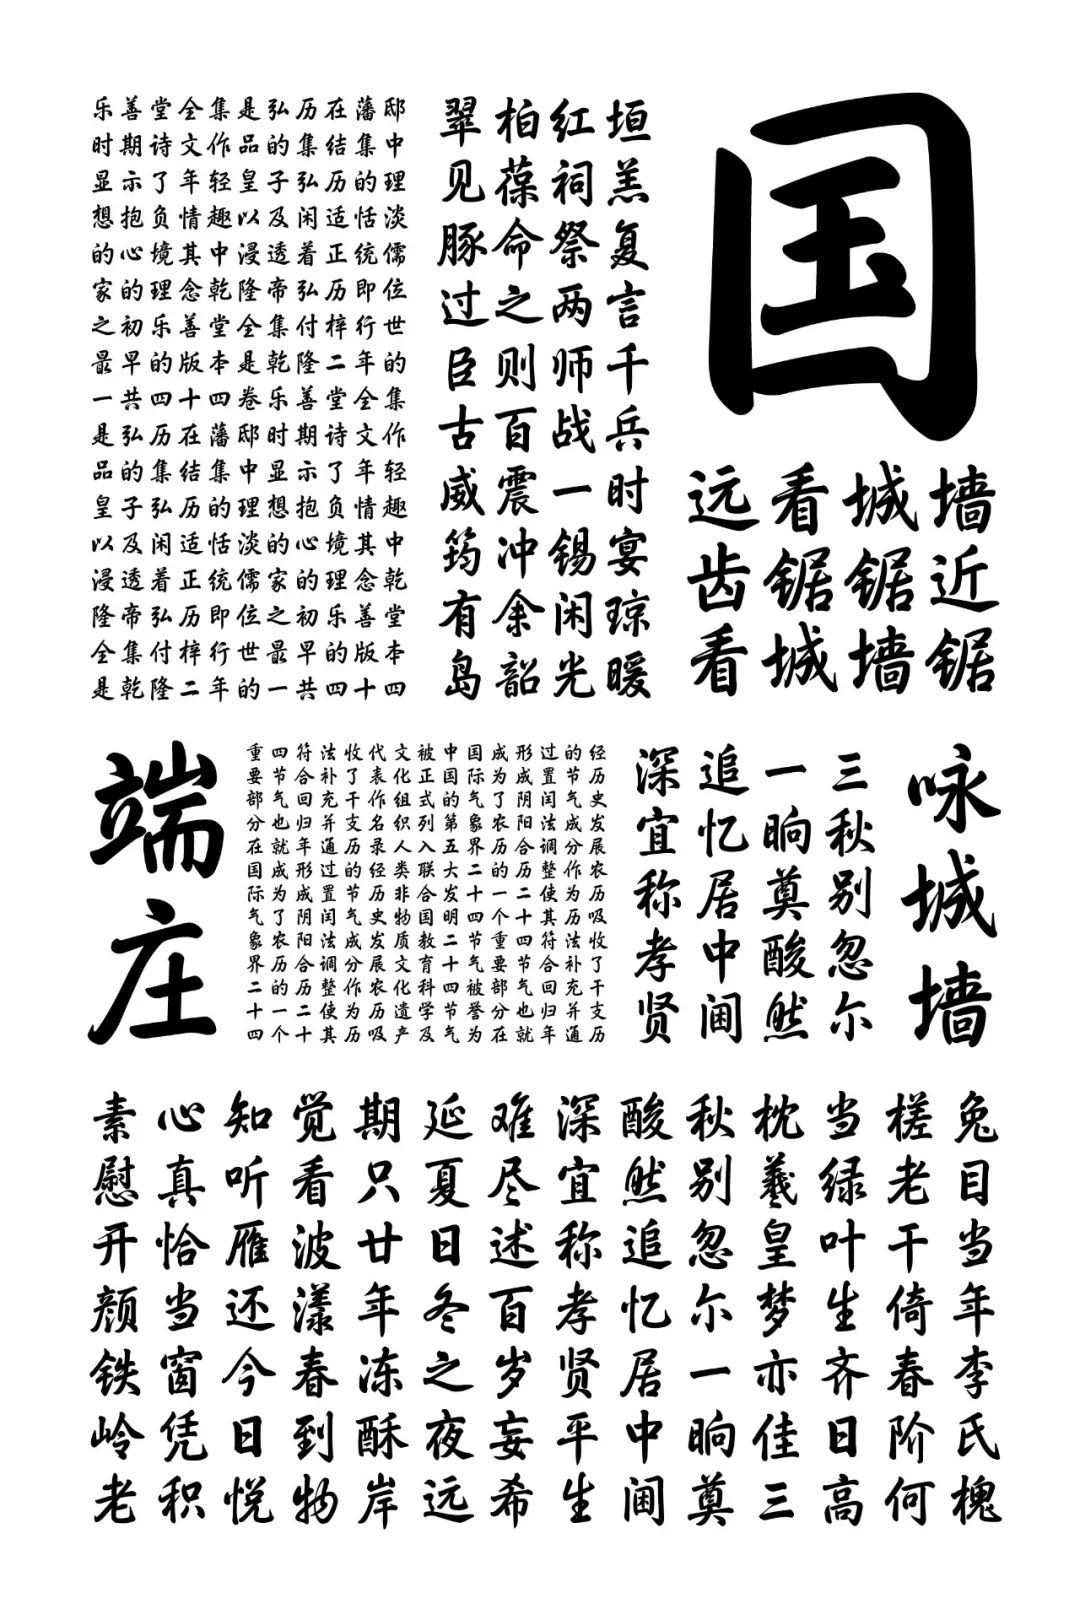 乐善堂全集是弘历在藩邸
时期诗文作品的集结集中
显示了年轻皇子弘历的理
想抱负情趣以及闲适恬淡
的心境其中浸透着正统儒
家的理念乾隆帝弘历即位
之初乐善堂全集付梓行世
最早的版本是乾隆二年的
一共四十四卷乐善堂全集
是弘历在藩邸时期诗文作
品的集结集中显示了年轻
皇子弘历的理想抱负情趣
以及闲适恬淡的心境其中
浸透着正统儒家的理念乾
隆帝弘历即位之初乐善堂
全集付梓行世最早的版本
是乾隆二年的一共四十四
垣羔复言千兵时宴琼暖
红祠祭两师战一锡闲光
柏葆命之则百震冲余韶
翠见豚过臣古威筠有岛
国
远看城墙
齿锯锯近
看城墙锯
端庄
经历史发展农历吸收了干支历
的节气成分作为历法补充并通
过置闰法调整使其符合回归年
形成阴阳合历二十四节气也就
成为了农历的一个重要部分在
国际气象界二十四节气被誉为
中国的第五大发明二十四节气
被正式列入联合国教育科学及
文化组织人类非物质文化遗产
代表作名录经历史发展农历吸
收了干支历的节气成分作为历
法补充并通过置闰法调整使其
符合回归年形成阴阳合历二十
四节气也就成为了农历的一个
重要部分在国际气象界二十四
咏城墙
三秋别忽尔
一晌奠酸然
追忆居中阃
深宜称孝贤
兔目当年李氏槐
槎老干倚春阶何
当绿叶生齐日高
枕羲皇梦亦佳三
秋别忽尔一晌奠
酸然追忆居中阃
深宜称孝贤平生
难尽述百岁妄希
延夏日冬之夜远
期只廿年冻酥岸
觉看波漾春到物
知听雁还今日悦
心真恰当窗凭积
素慰开颜铁岭老